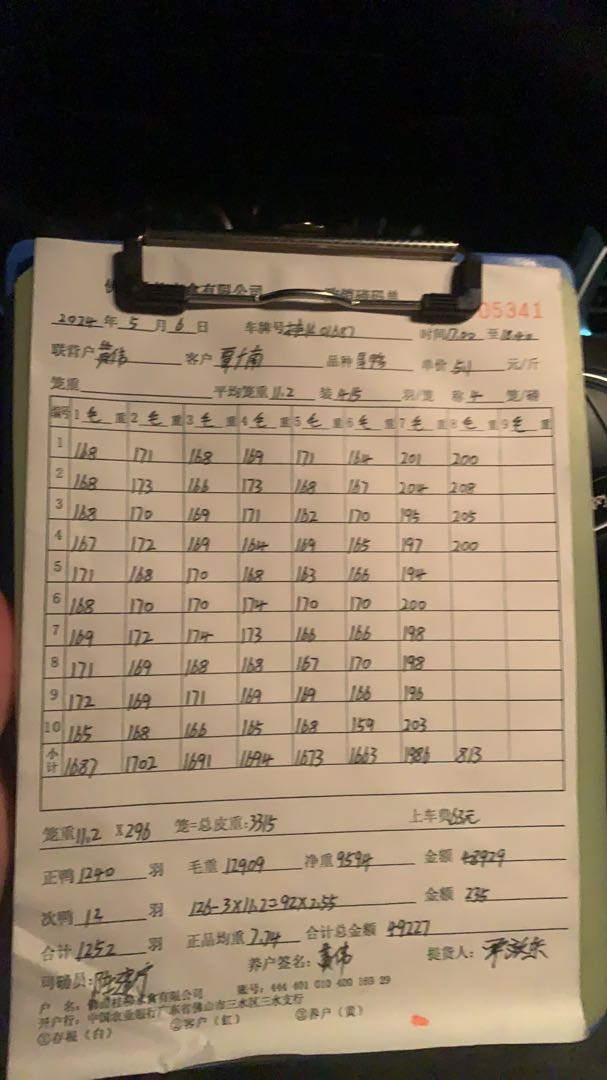 食有限公司
05341
2024年5月6日 车牌号 01687 时间17:00至18:40
联营户黄伟 客户 品种 单价5.1元/斤
笼重 平均笼重11.2 装4.15羽/笼 称4笼/磅
编号 1毛重 2毛重 3毛重 4毛重 5毛重 6毛重 7毛重 8毛重 9毛重
1 168 171 168 169 171 164 201 200
2 168 173 166 173 168 167 204 208
3 168 170 169 171 162 170 195 205
4 167 172 169 164 169 165 197 200
5 171 168 170 168 163 166 194
6 168 170 170 174 170 170 200
7 169 172 174 173 166 166 198
8 171 169 168 168 167 170 198
9 172 169 171 169 169 166 196
10 165 168 166 165 168 159 203
小计 1687 1702 1691 1694 1673 1663 1986 813
笼重11.2 X296 笼=总皮重:3315 上车费63元
正鸭1240羽 毛重12909 净重9594 金额48929
次鸭12羽 126-3×11.2=92×2.55 金额235
合计1252羽 正品均重7.74 合计总金额49227
司磅员: 养户签名:黄伟 提货人:
户 名: 食有限公司 账号:444 401 010 400 163 29
开户行:中国农业银行广东省佛山市三水区三水支行
①存根(白) ②客户(红) ③养户(黄)